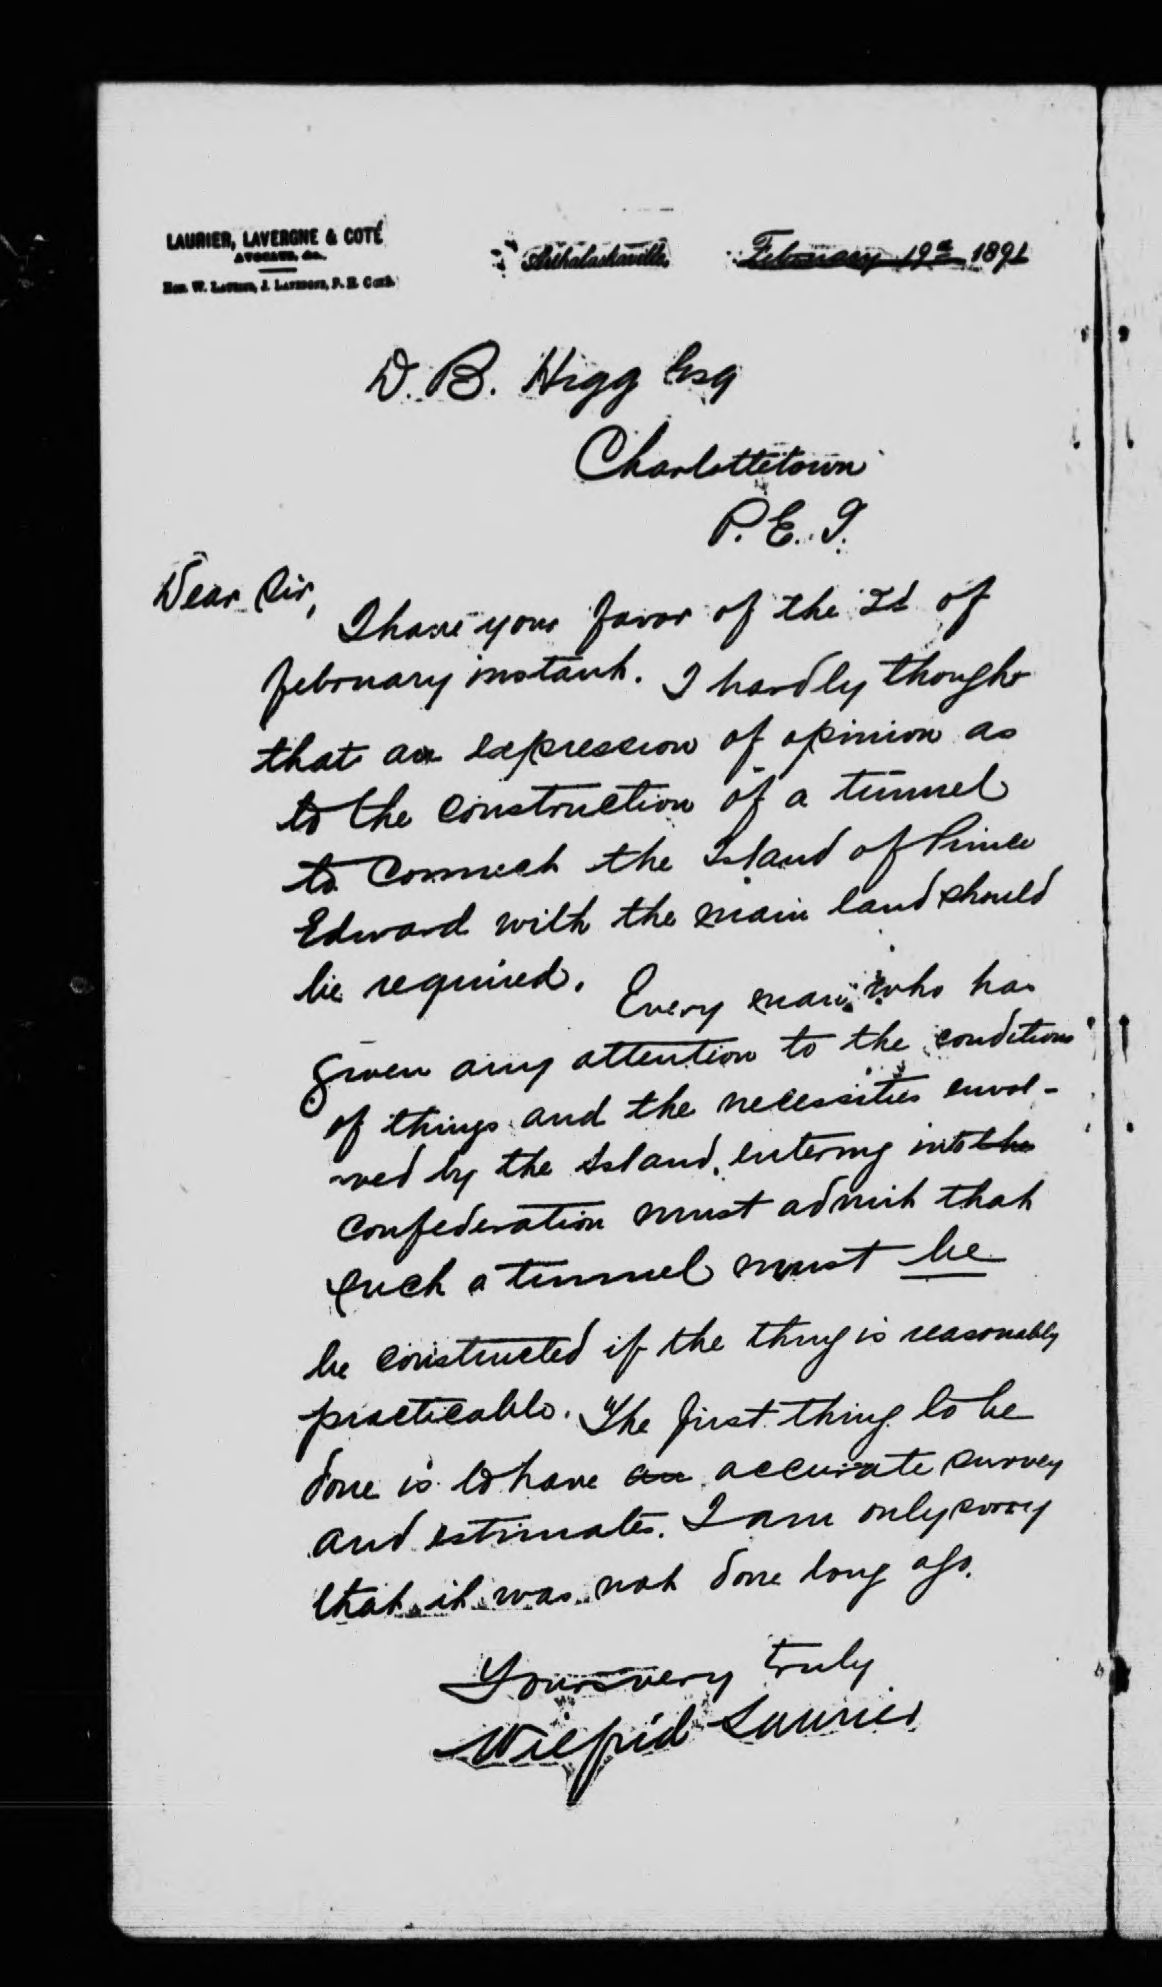 LAURIER, LAVERGNE & COTÉ
AVOCATS, &c.
Hon. W. Laurier, J. Lavergne, P. H. Coté
Arthabaskaville, February 19th 1891
D. B. Higg Esq
Charlottetown
P. E. I.
Dear Sir,
I have your favor of the of
february instant. I hardly thought
that an expression of opinion as
to the construction of a tunnel
to connect the Island of Prince
Edward with the main land should
be required. Every man who has
given any attention to the conditions
of things and the necessities envol-
ved by the Island, entering into the
confederation must admit that
such a tunnel must be
be constructed if the thing is reasonably
practicable. The first thing to be
done is to have an accurate survey
and estimates. I am only sorry
that it was not done long ago.
Yours very truly
Wilfrid Laurier